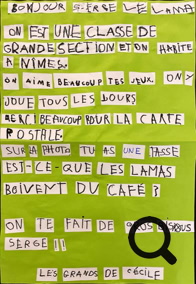 BONJOUR SERGE LE LAMA
ON EST UNE CLASSE DE
GRANDE SECTION ET ON HABITE
A NÎMES.
ON AIME BEAUCOUP TES JEUX. ON Y
JOUE TOUS LES JOURS
MERCI BEAUCOUP POUR LA CARTE
POSTALE.
SUR LA PHOTO TU AS UNE TASSE
EST-CE-QUE LES LAMAS
BOIVENT DU CAFÉ ?
ON TE FAIT DE GROS BISOUS
SERGE !!
LES GRANDS DE CÉCILE